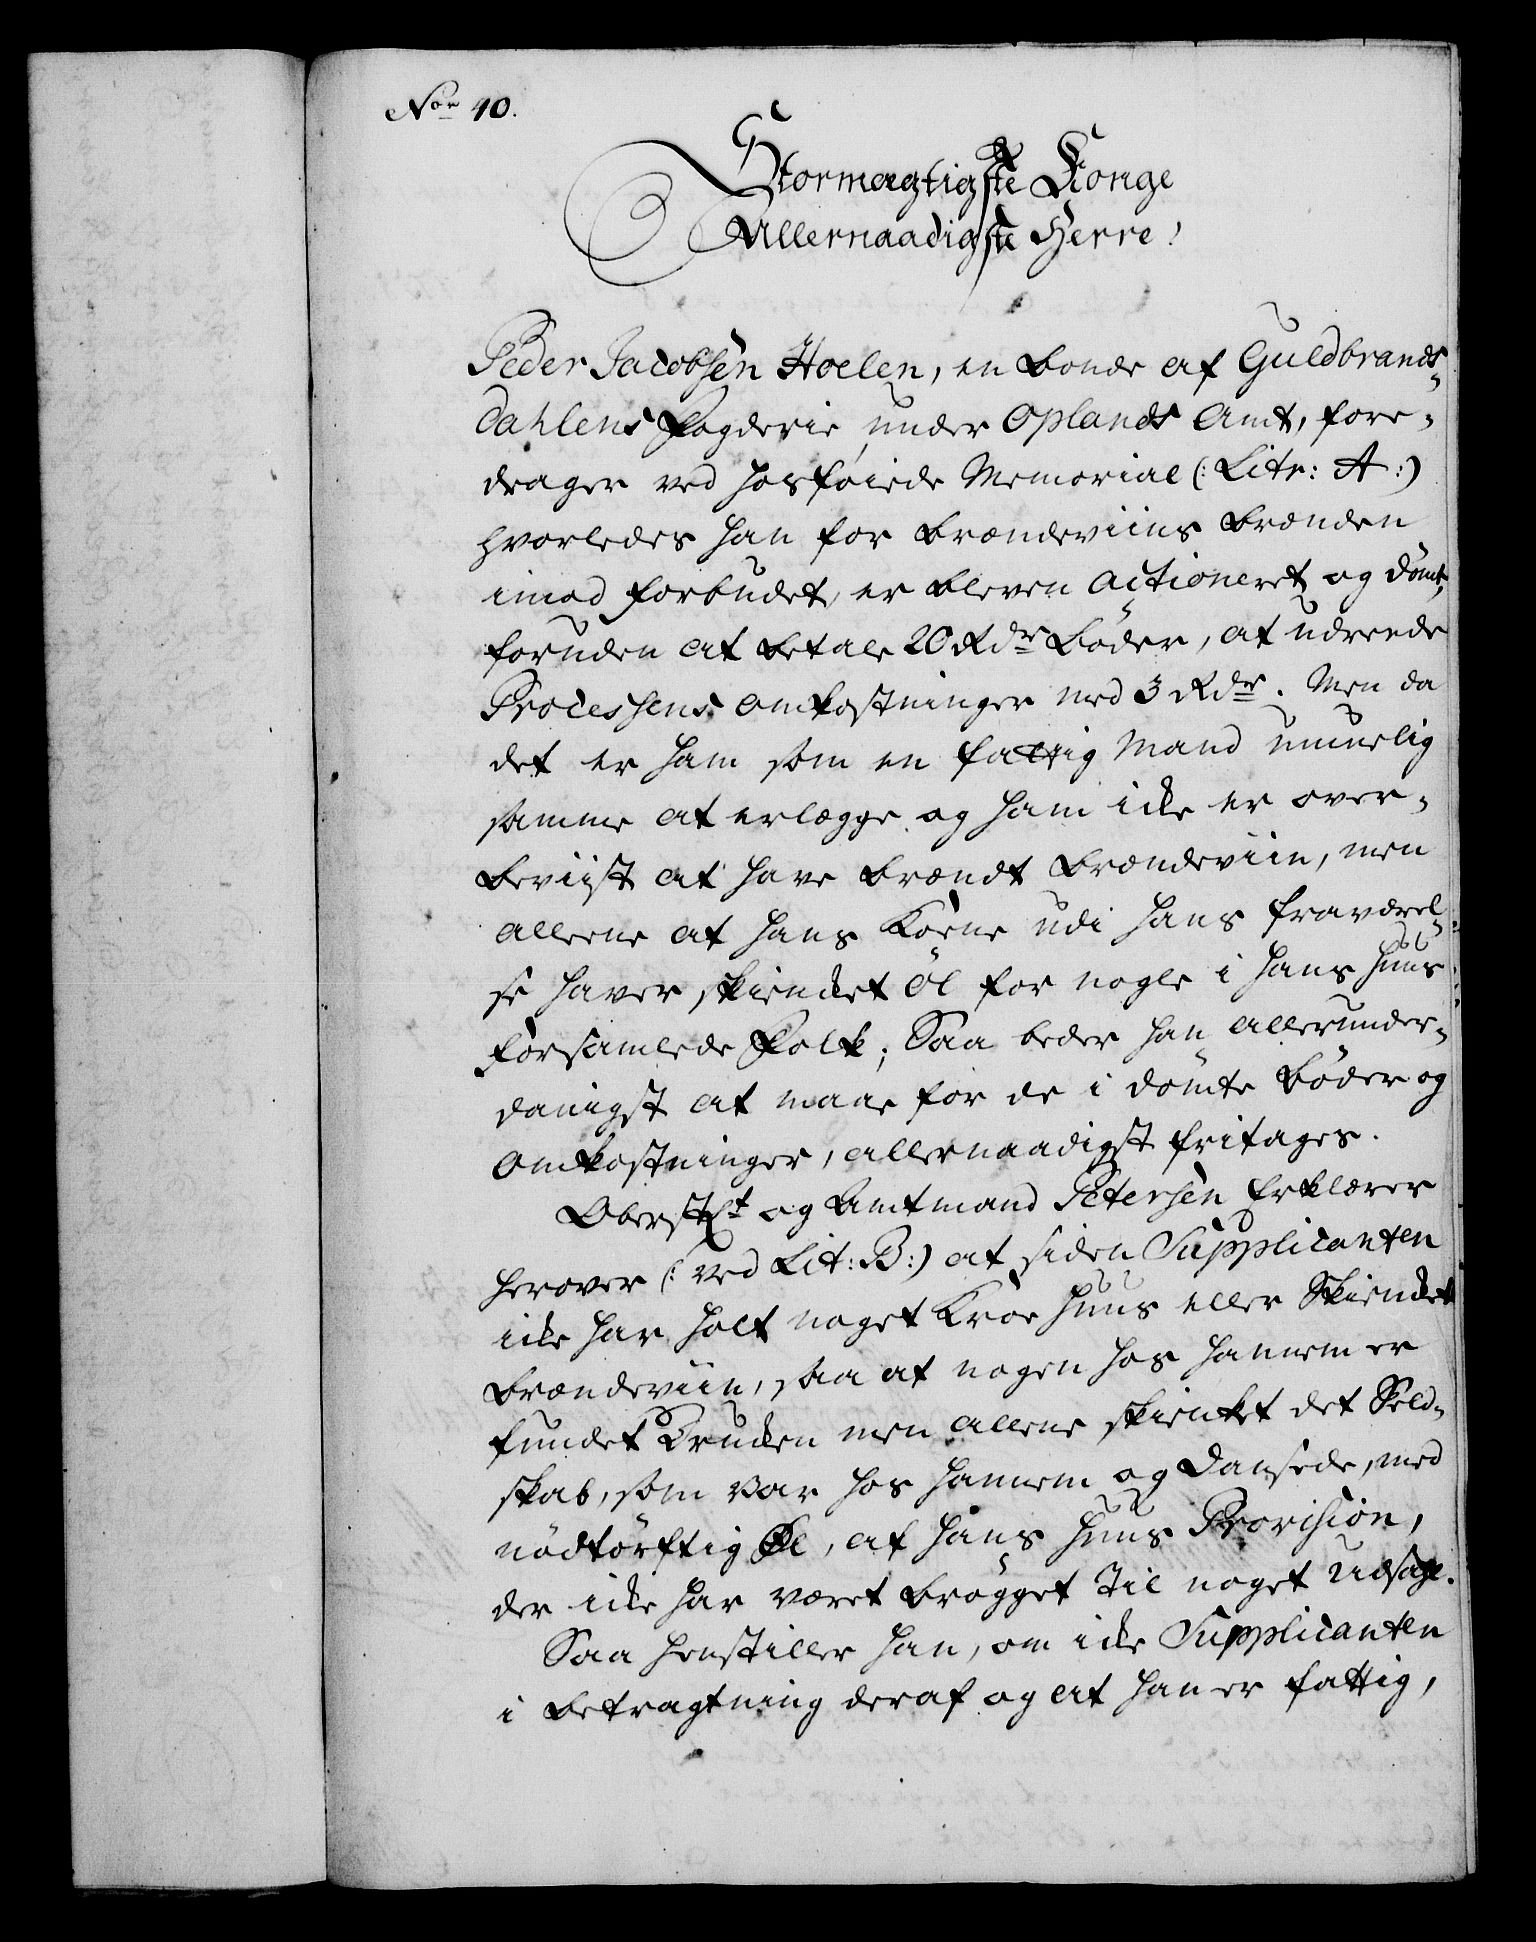 Nor 10.
Stormægtigste Konge
Allernaadigste Herre!
Peder Jacobsen Hoelen, en bonde af Guldbrands-
dahlens Fogderie under Oplands Amt, fore-
drager ved hosføiede Memorial (: Litr: A :)
hvorledes han for Brændeviins brænden
imod forbudet, er bleven actioneret og dømt,
foruden at betale 20 Rdr Bøder, at udreede
Processens omkostninger med 3 Rdr. Men da
det er ham som en fattig Mand umuelig
samme at erlægge og ham icke er over-
beviist at have brændt Brændeviin, men
alleene at hans Kone udi hans fraværel-
se haver skiencket Øl for nogle i hans huus
forsamlede Folk; Saa beder han allerunder-
danigst at maae for de i dømte Bøder og
omkostninger, allernaadigst fritages.
Oberstlt og Amtmand Petersen Erklærer
herover (: ved Lit: B :) at siden Supplicanten
icke har holt noget Kroe huus eller Skiencket
Brændeviin, saa at nogen hos hannem er
fundet Drucken men allene skienket det Sels-
skab, som var hos hannem og dansede, med
nødtørftig Øl, af hans huus Provision,
der icke har været brøgget til noget Udsalg.
Saa henstiller han, om icke Supplicanten
i betragtning deraf og at han er fattig,